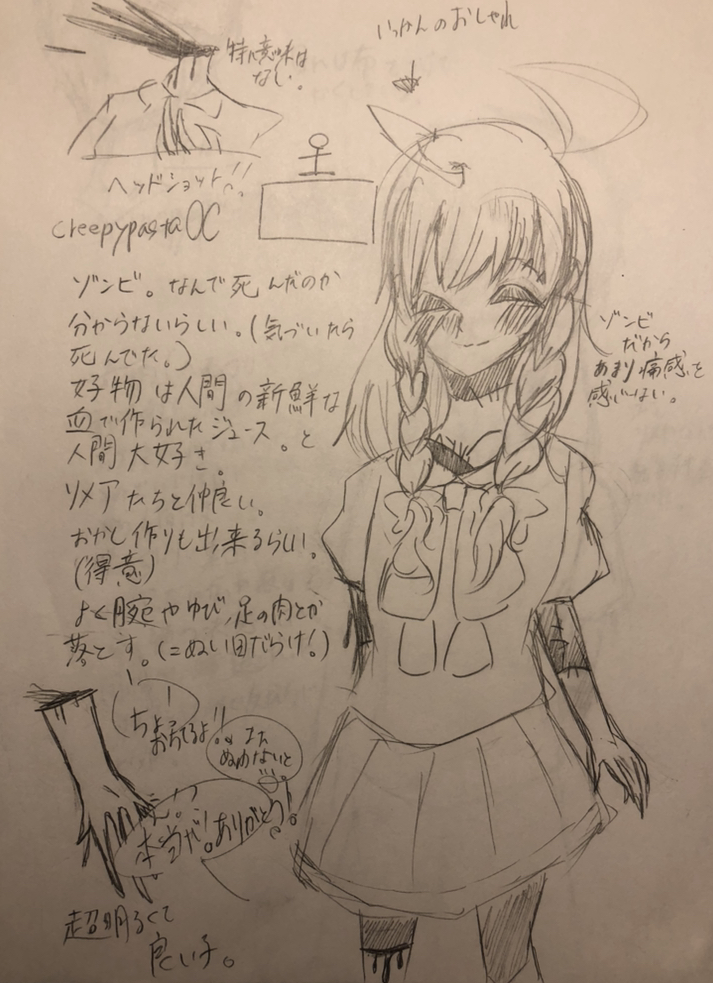 いっかんのおしゃれ
特に意味は
なし。
ヘッドショット!!
creepypasta OC
ゾンビ。なんで死んだのか
分からないらしい。(気づいたら
死んでた。)
好物は人間の新鮮な
血で作られたジュース。と
人間大好き。
リメアたちと仲良い。
おかし作りも出来るらしい。
(得意)
よく腕やゆび、足の肉とか
落とす。(=ぬい目だらけ!)
ゾンビ
だから
あまり痛感を
感じない。
ちょ
おちてるよ!!
また
ぬわないと
ん!?
本当だ!ありがとう!
超明るくて
良い子。